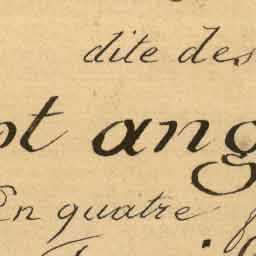 dite des
pt ang
En quatre f